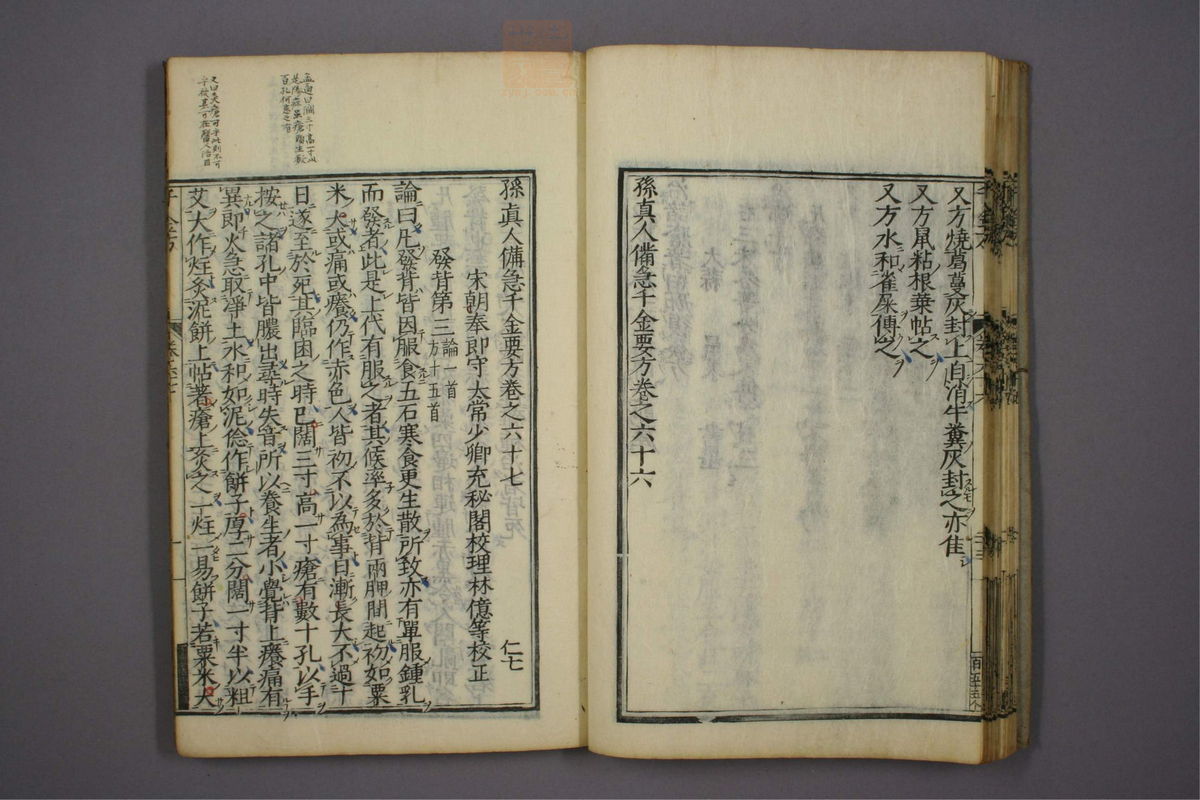 又方燒葛蔓灰封上自消牛糞灰封之亦佳
又方鼠粘根葉帖之
又方水和雀屎傅之
孫真人備急千金要方卷之六十六
孫真人備急千金要方卷之六十七
仁七
宋朝奉郎守太常少卿充秘閣校理林億等校正
發背第三
論一首
方十五首
論曰凡發背皆因服食五石寒食更生散所致亦有單服鍾乳
而發者此是上代有服之者其候率多於背兩胛間起初如粟
米大或痛或癢仍作赤色人皆初不以為事日漸長大不過十
日遂至於死其臨困之時已闊三寸高一寸瘡有數十孔以手
按之諸孔中皆膿出尋時失音所以養生者小覺背上癢痛有
異即火急取淨土水和如泥捻作餅子厚二分闊一寸半以粗
艾大作炷灸泥餅上帖著瘡上灸之一炷一易餅子若粟米大